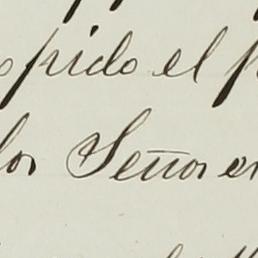 pido el
los Señores